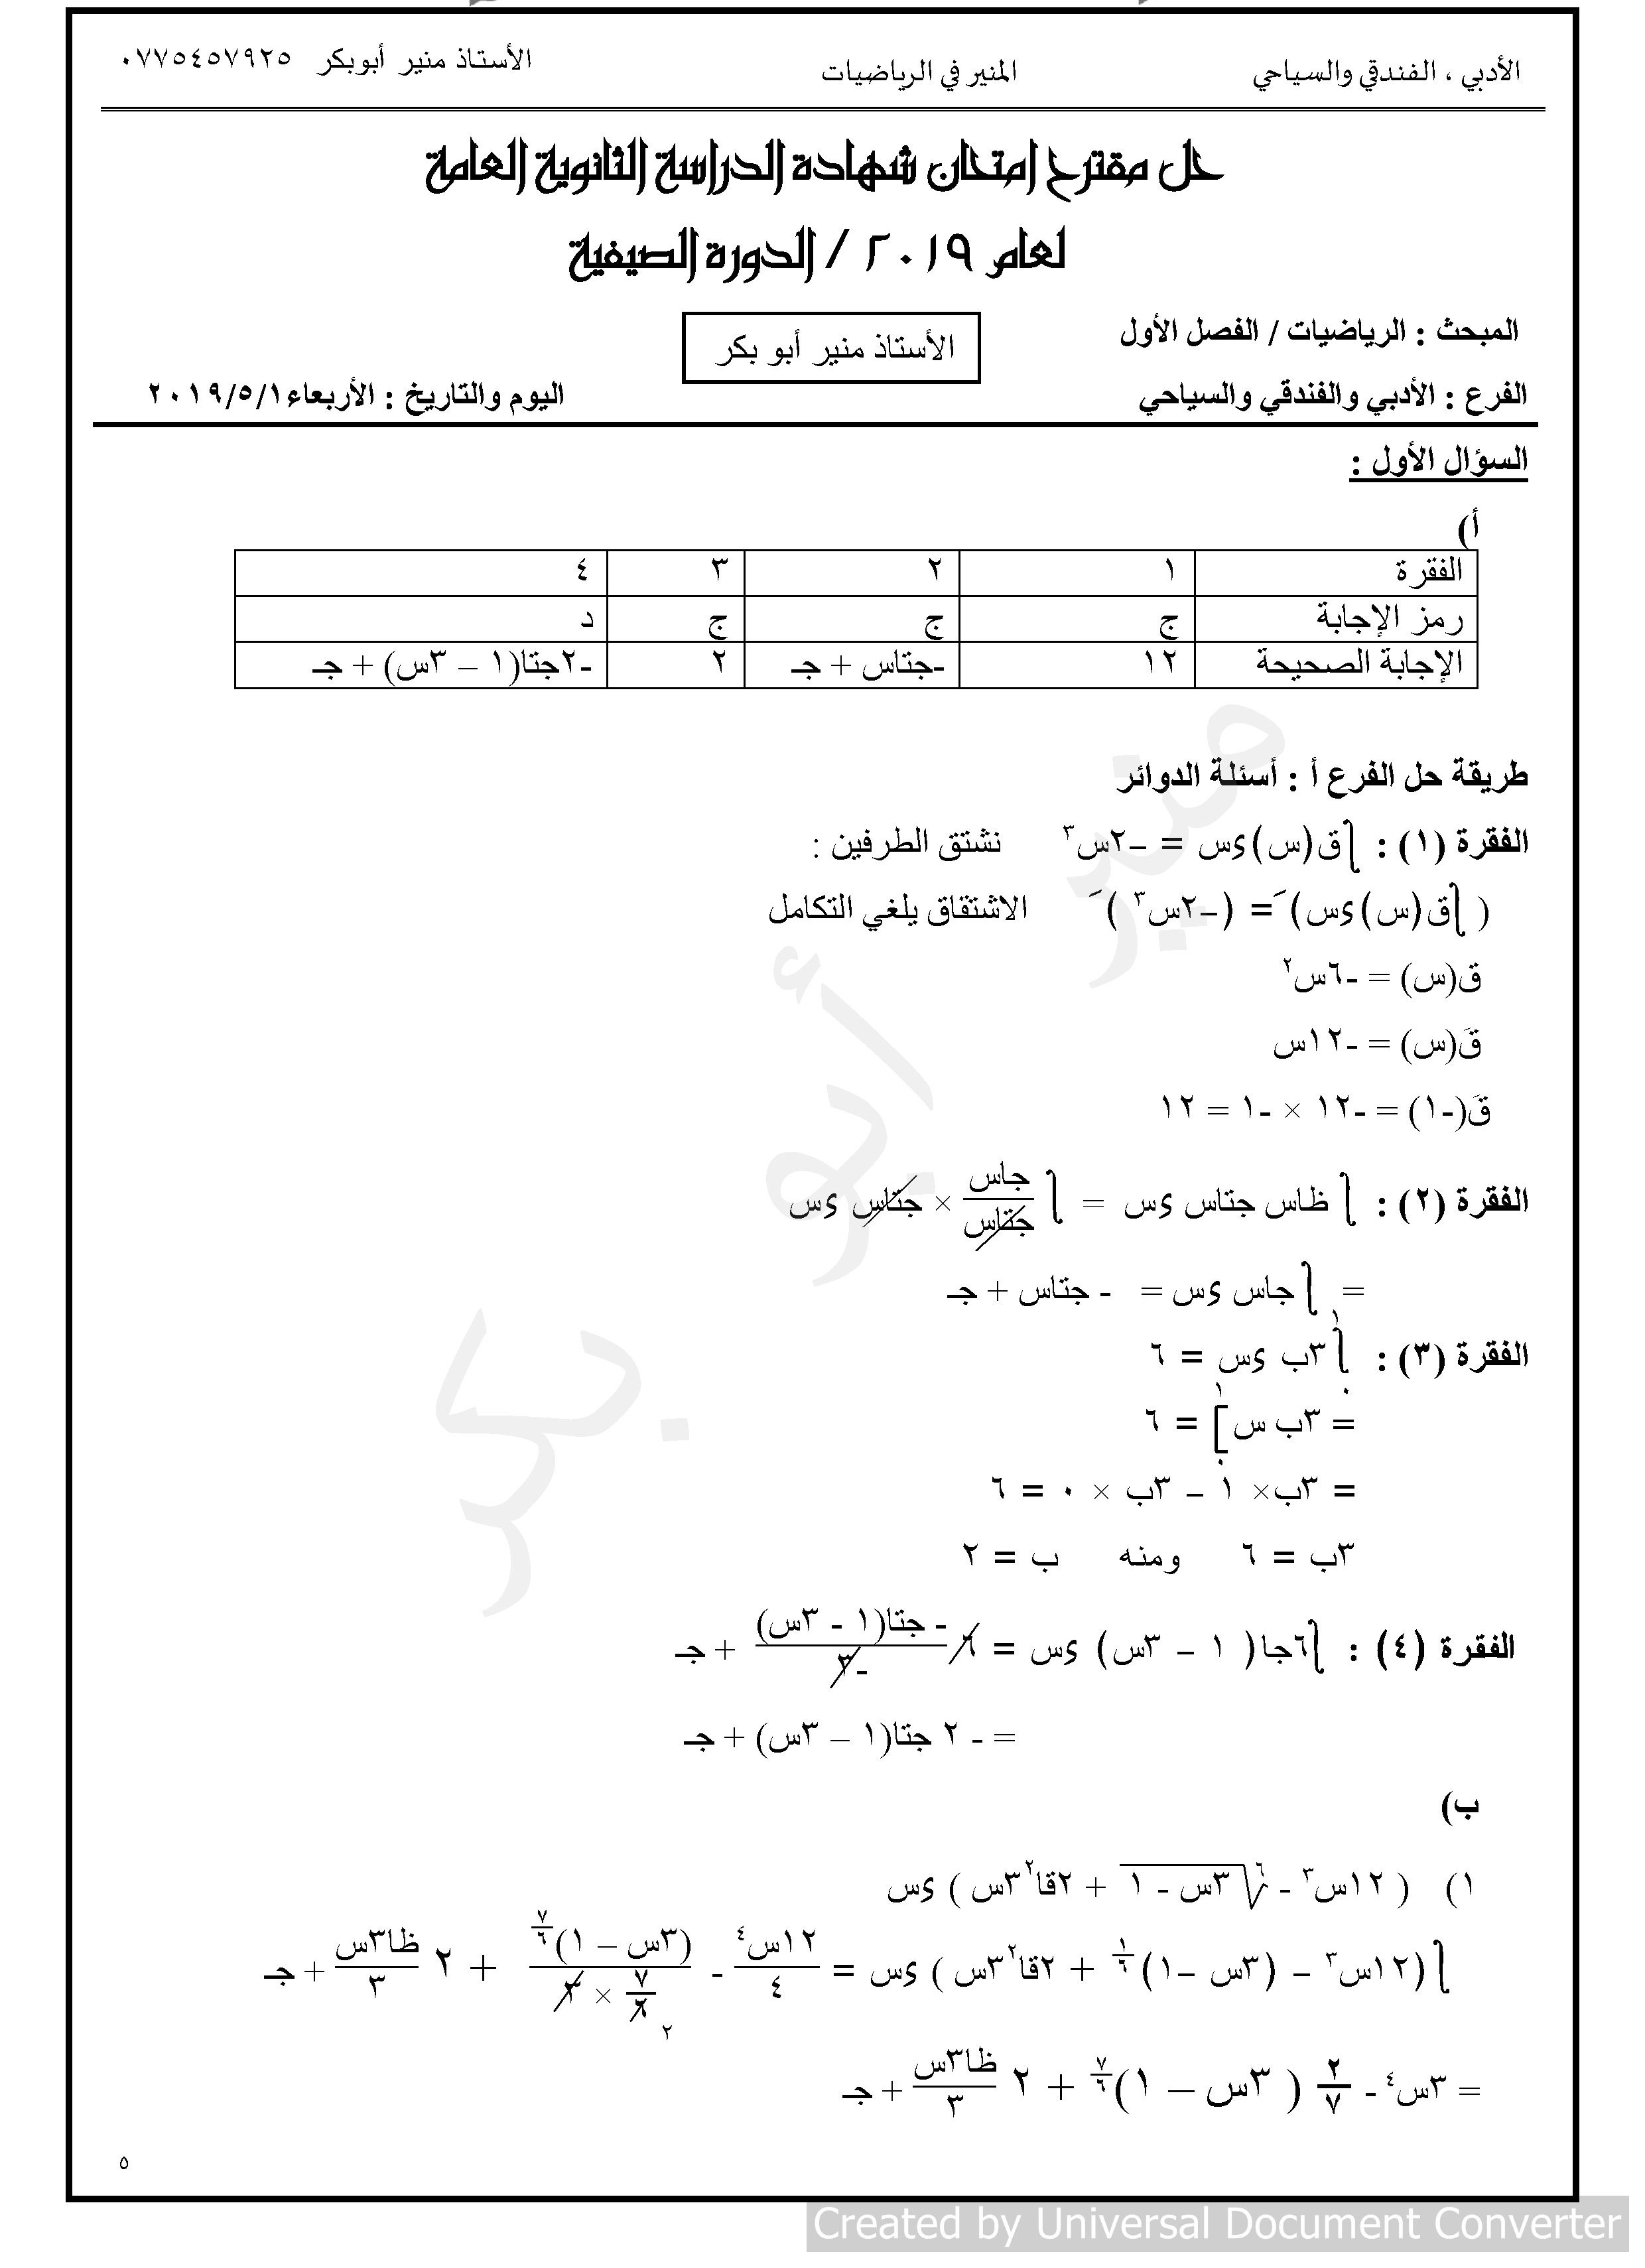 الأدبي ، الفندقي والسياحي المنير في الرياضيات الأستاذ منير أبوبكر ٠٧٧٥٤٥٧٩٢٥
حل مقترح امتحان شهادة الدراسة الثانوية العامة
لعام ٢٠١٩ / الدورة الصيفية
المبحث : الرياضيات / الفصل الأول
الأستاذ منير أبو بكر
الفرع : الأدبي والفندقي والسياحي اليوم والتاريخ : الأربعاء ٢٠١٩/٥/١
السؤال الأول :
أ)
الفقرة ١ ٢ ٣ ٤
رمز الإجابة ج ج ج د
الإجابة الصحيحة ١٢ -جتاس + جـ ٢ -٢جتا(١ – ٣س) + جـ
طريقة حل الفرع أ : أسئلة الدوائر
الفقرة (١) : ∫ق(س)ءس = –٢س³ نشتق الطرفين :
( ∫ق(س)ءس)َ = (–٢س³ )َ الاشتقاق يلغي التكامل
ق(س) = -٦س²
قَ(س) = -١٢س
قَ(-١) = -١٢ × -١ = ١٢
الفقرة (٢) : ∫ ظاس جتاس ءس = ∫ جاس/جتاس × جتاس ءس
= ∫ جاس ءس = - جتاس + جـ
الفقرة (٣) : ∫₀¹ ٣ب ءس = ٦
= ٣ب س]₀¹ = ٦
= ٣ب× ١ – ٣ب × ٠ = ٦
٣ب = ٦ ومنه ب = ٢
الفقرة (٤) : ∫٦جا( ١ – ٣س) ءس = ٦ - جتا(١ - ٣س)/-٣ + جـ
= - ٢ جتا(١ – ٣س) + جـ
ب)
١) ( ١٢س³ - ⁶√(٣س - ١) + ٢قا²٣س ) ءس
∫(١٢س³ – (٣س –١)^(١/٦) + ٢قا²٣س ) ءس = ١٢س⁴/٤ - (٣س – ١)^(٧/٦)/(٧/٦ × ٣) + ٢ ظا٣س/٣ + جـ
٢
= ٣س⁴ - ٢/٧ ( ٣س – ١)^(٧/٦) + ٢ ظا٣س/٣ + جـ
٥
منير أبو بكر
Created by Universal Document Converter